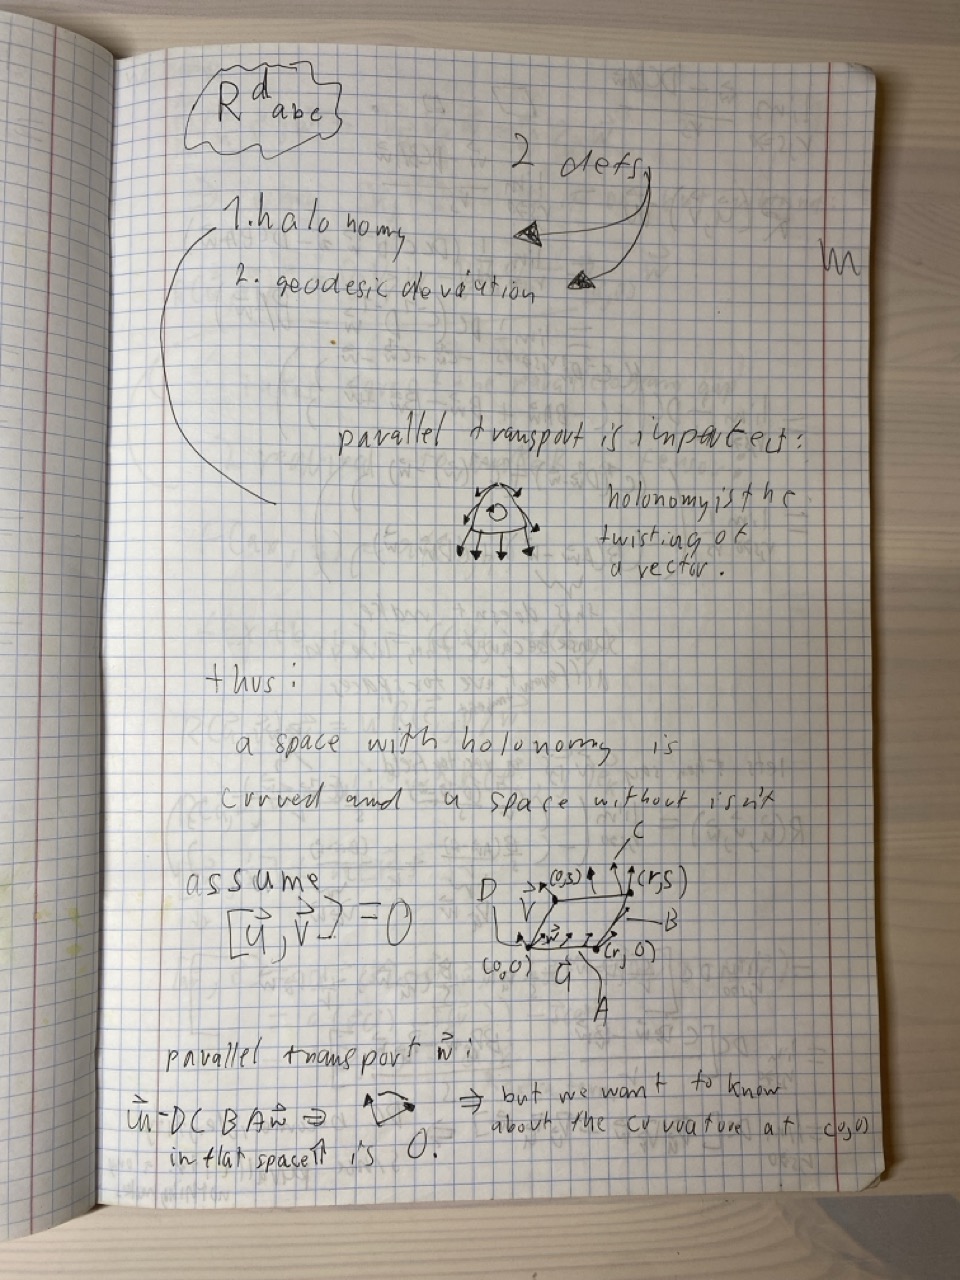 R^d_abc
2 defs
1. halonomy
2. geodesic deviation
m
parallel transport is inpertect:
holonomy is the
twisting of
a vector.
thus:
a space with holonomy is
curved and a space without isn't
assume
[u⃗, v⃗] = 0
C
D
(0,s)
(r,s)
v⃗
B
w⃗
(0,0)
u⃗
(r,0)
A
parallel transport w⃗:
w⃗-DCBAw⃗ ⇒
⇒ but we want to know
about the curvature at (0,0)
in flat space ⇑ is 0.